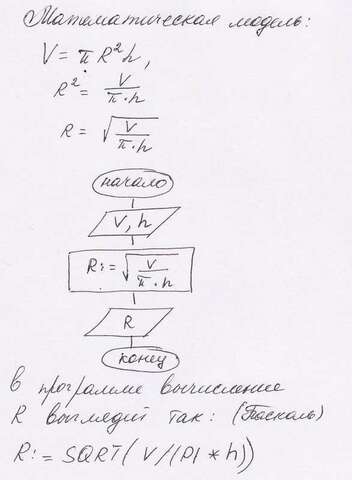 Математическая модель:
V = π R² h,
R² = V / π · h
R = √ V / π · h
начало
V, h
R := √ V / π · h
R
конец
в программе вычисление
R выглядит так: (Паскаль)
R := SQRT( V /(PI * h))